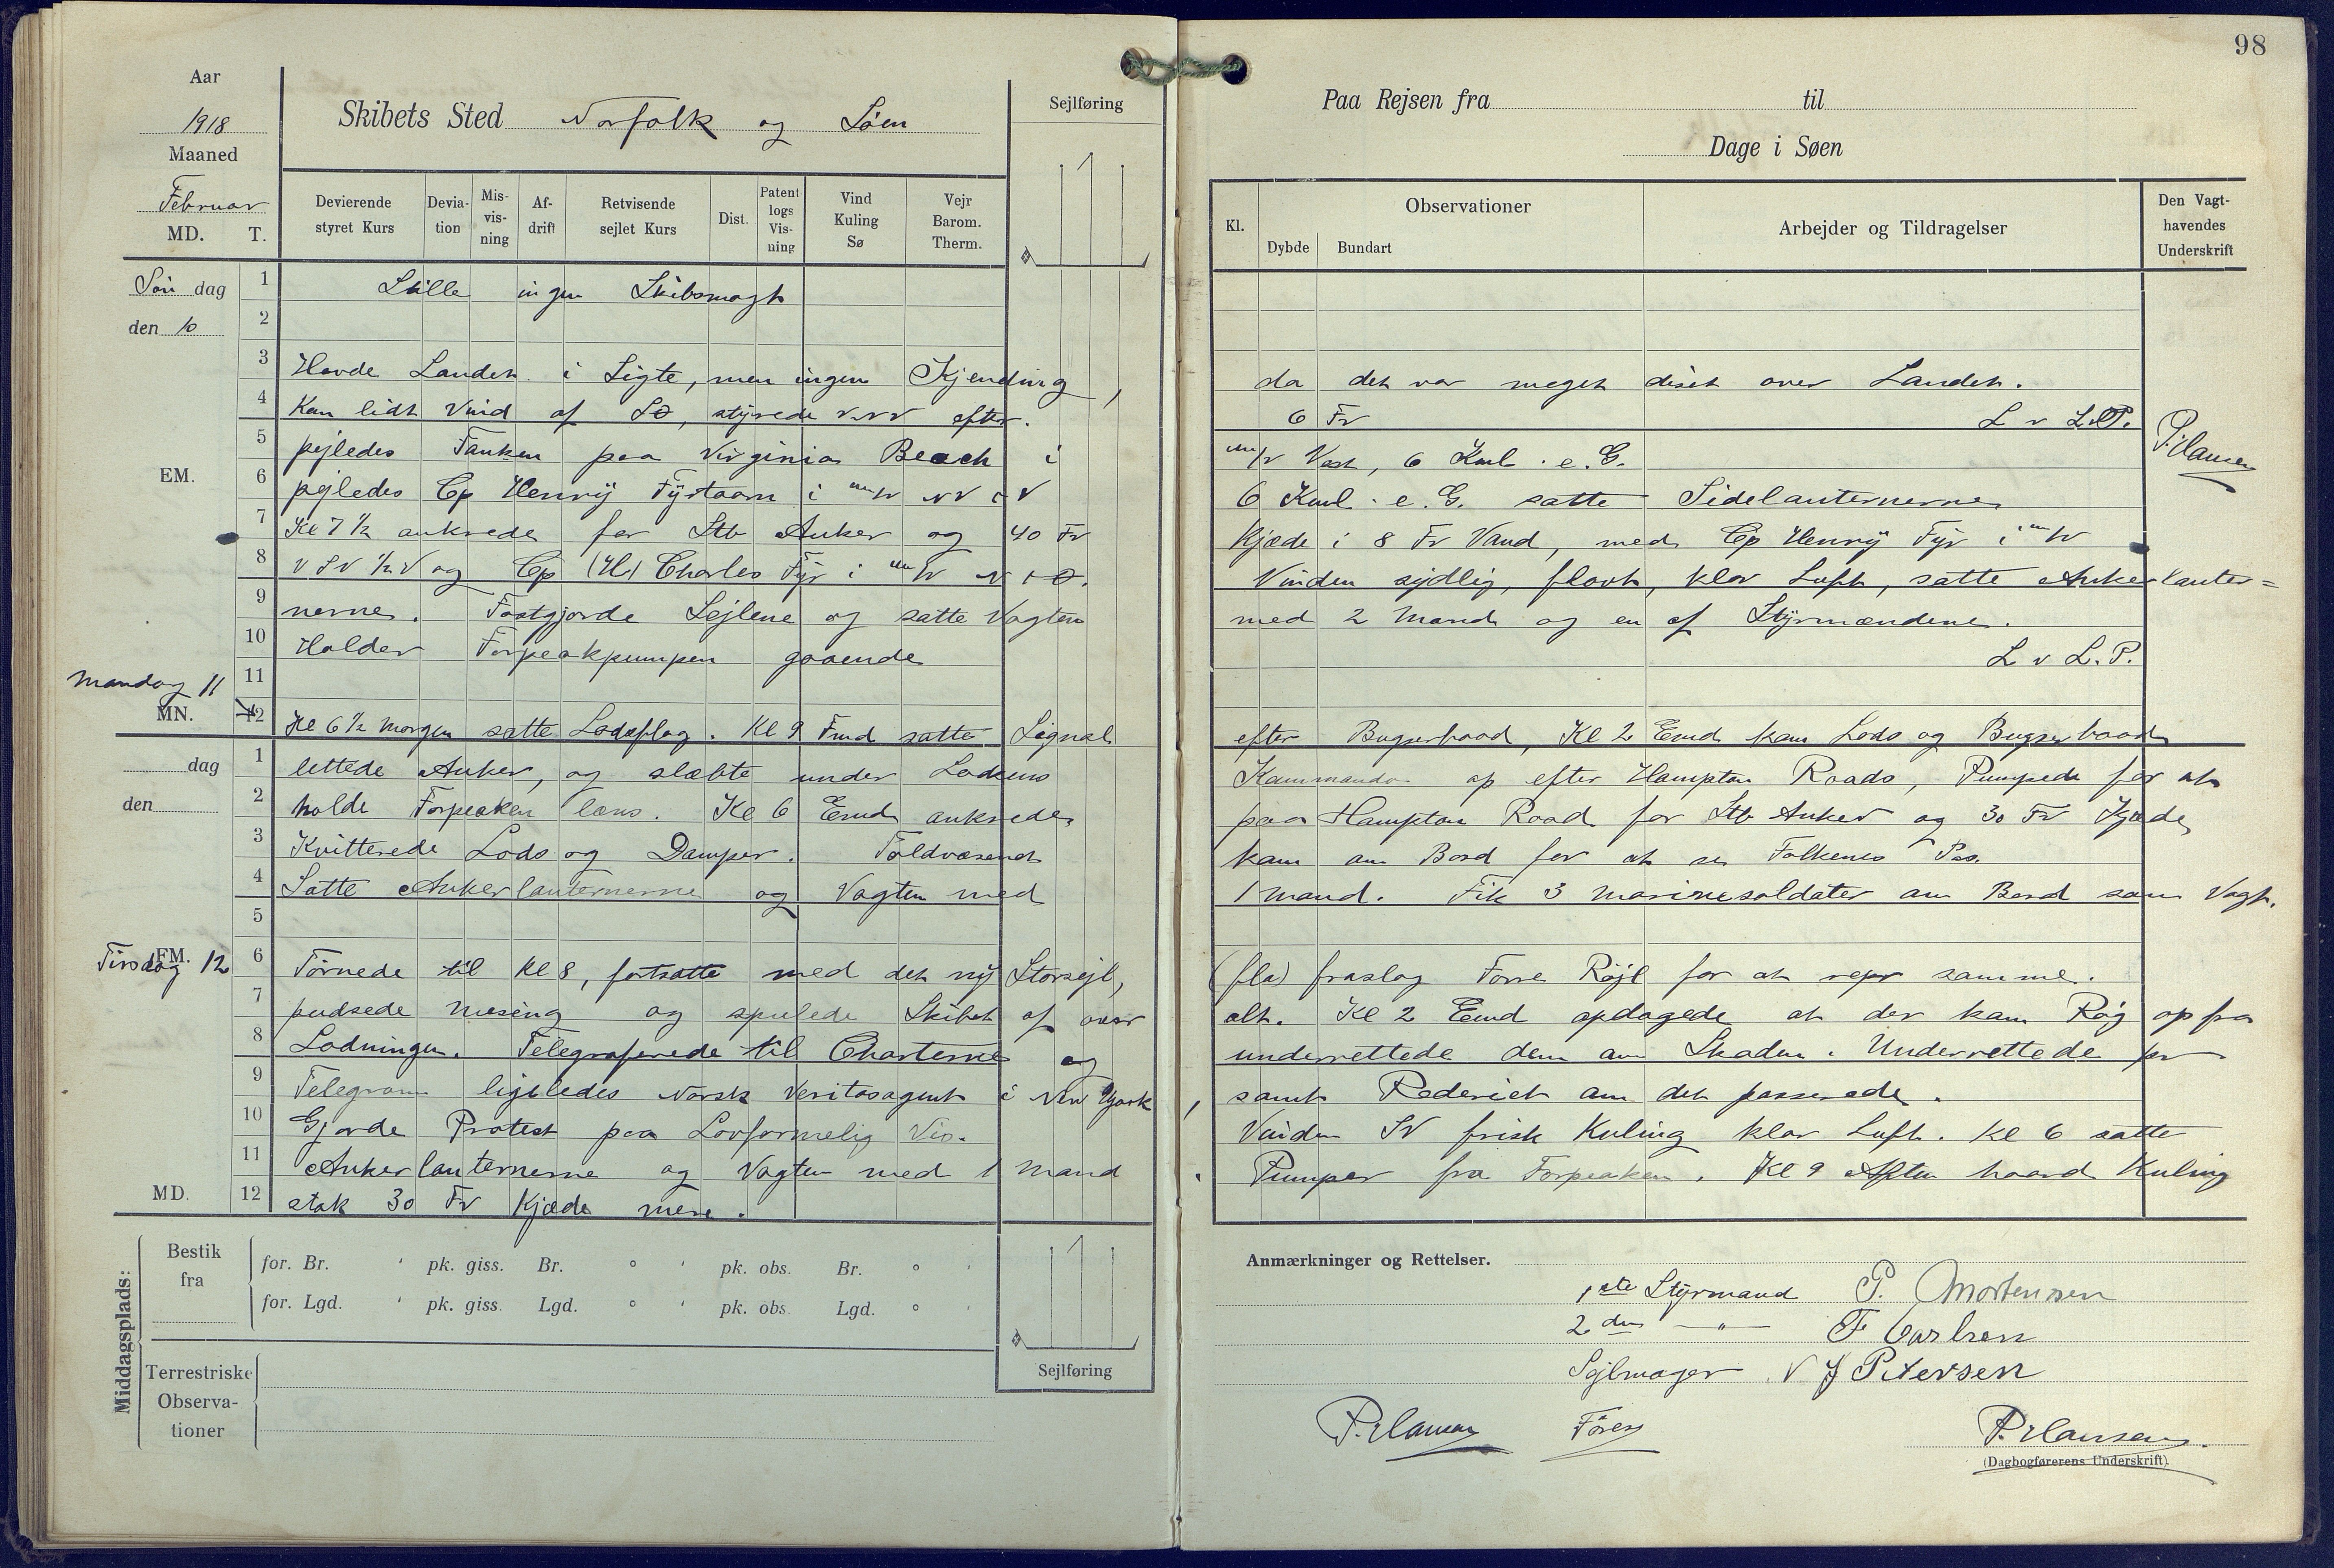 98
Aar
1918
Maaned
Februar
MD. T.
Skibets Sted Norfolk og Søen
Sejlføring
Devierende styret Kurs
Devia-tion
Mis-vis-ning
Af-drift
Retvisende sejlet Kurs
Dist.
Patent logs Vis-ning
Vind Kuling Sø
Vejr Barom. Therm.
Paa Rejsen fra til
Dage i Søen
Kl.
Observationer
Dybde Bundart
Arbejder og Tildragelser
Den Vagt-havendes Underskrift
Søn dag
den 10
EM.
1 Stille ingen Skibsmagt
2
3 Havde Landet i Sigte, men ingen Kjending, da det var meget diset over Landet.
4 Kom lidt Vind af SO, styrede VNV efter. 6 Fv L v L.P.
5 pejledes Tanken paa Virginia Beach i mw Vest, 6 Kml. e. G.
P. Hansen
6 pejledes Cp Henrÿ Fÿrtaarn i mw NV t V 6 Kml. e. G. satte Sidelanternerne
7 Kl 7 1/2 ankrede for Stb Anker og 40 Fv Kjæde i 8 Fv Vand, med Cp Henrÿ Fÿr i mw
8 VSV 1/2 V og Cp (H) Charles Fÿr i mw N t O. Vinden sydlig, flovt, klar Luft, satte Ankerlanter=
9 nerne. Fastgjorde Sejlene og satte Vagten med 2 Mand og en af Stÿrmændene.
10 Holder Forpeakpumpen gaaende L v L.P.
Mandag 11
11
MN.
12 Kl 6 1/2 Morgen satte Lodsflag. Kl 9 Fmd satte Signal efter Bugserbaad, Kl 2 Emd kom Lods og Bugserbaad
dag
den
1 lettede Anker, og slæbte under Lodsens Kommando op efter Hampton Roads, Pumpede for at
2 holde Forpeaken læns. Kl 6 Emd ankrede paa Hampton Road for Stb Anker og 30 Fv Kjæde
3 Kvitterede Lods og Damper. Toldvæsenet kom om Bord for at se Folkenes Pas.
4 Satte Ankerlanternerne og Vagten med 1 Mand. Fik 3 Marinesoldater om Bord som Vagt.
5
FM.
Tirsdag 12
6 Törnede til Kl 8, fortsatte med det nÿ Storsejl, (fla) fraslog Forre Röjl for at repr samme.
7 pudsede Mesing og spulede Skibet af over alt. Kl 2 Emd opdagede at der kom Røg op fra
8 Ladningen. Telegraferede til Charterne og underrettede dem om Skaden. Underrettede pr
9 Telegram ligeledes Norsk Veritasagent i New York, samt Rederiet om det passerede.
10 Gjorde Protest paa Lovformelig Vis. Vinden SV frisk Kuling klar Luft. Kl 6 satte
11 Ankerlanternerne og Vagten med 1 Mand. Pumper fra Forpeaken. Kl 9 Aften haard Kuling
MD.
12 stak 30 Fv Kjæde mere.
Middagsplads:
Bestik fra
for. Br. ' pk. giss. Br. ° ' pk. obs. Br. ° '
for. Lgd. ' pk. giss. Lgd. ° ' pk. obs. Lgd. ° '
Sejlføring
Terrestriske Observa-tioner
Anmærkninger og Rettelser.
1ste Stÿrmand P. Mortensen
2den — " — F Carlsen
Sejlmager V J Petersen
P. Hansen Fører
P. Hansen
(Dagbogførerens Underskrift).